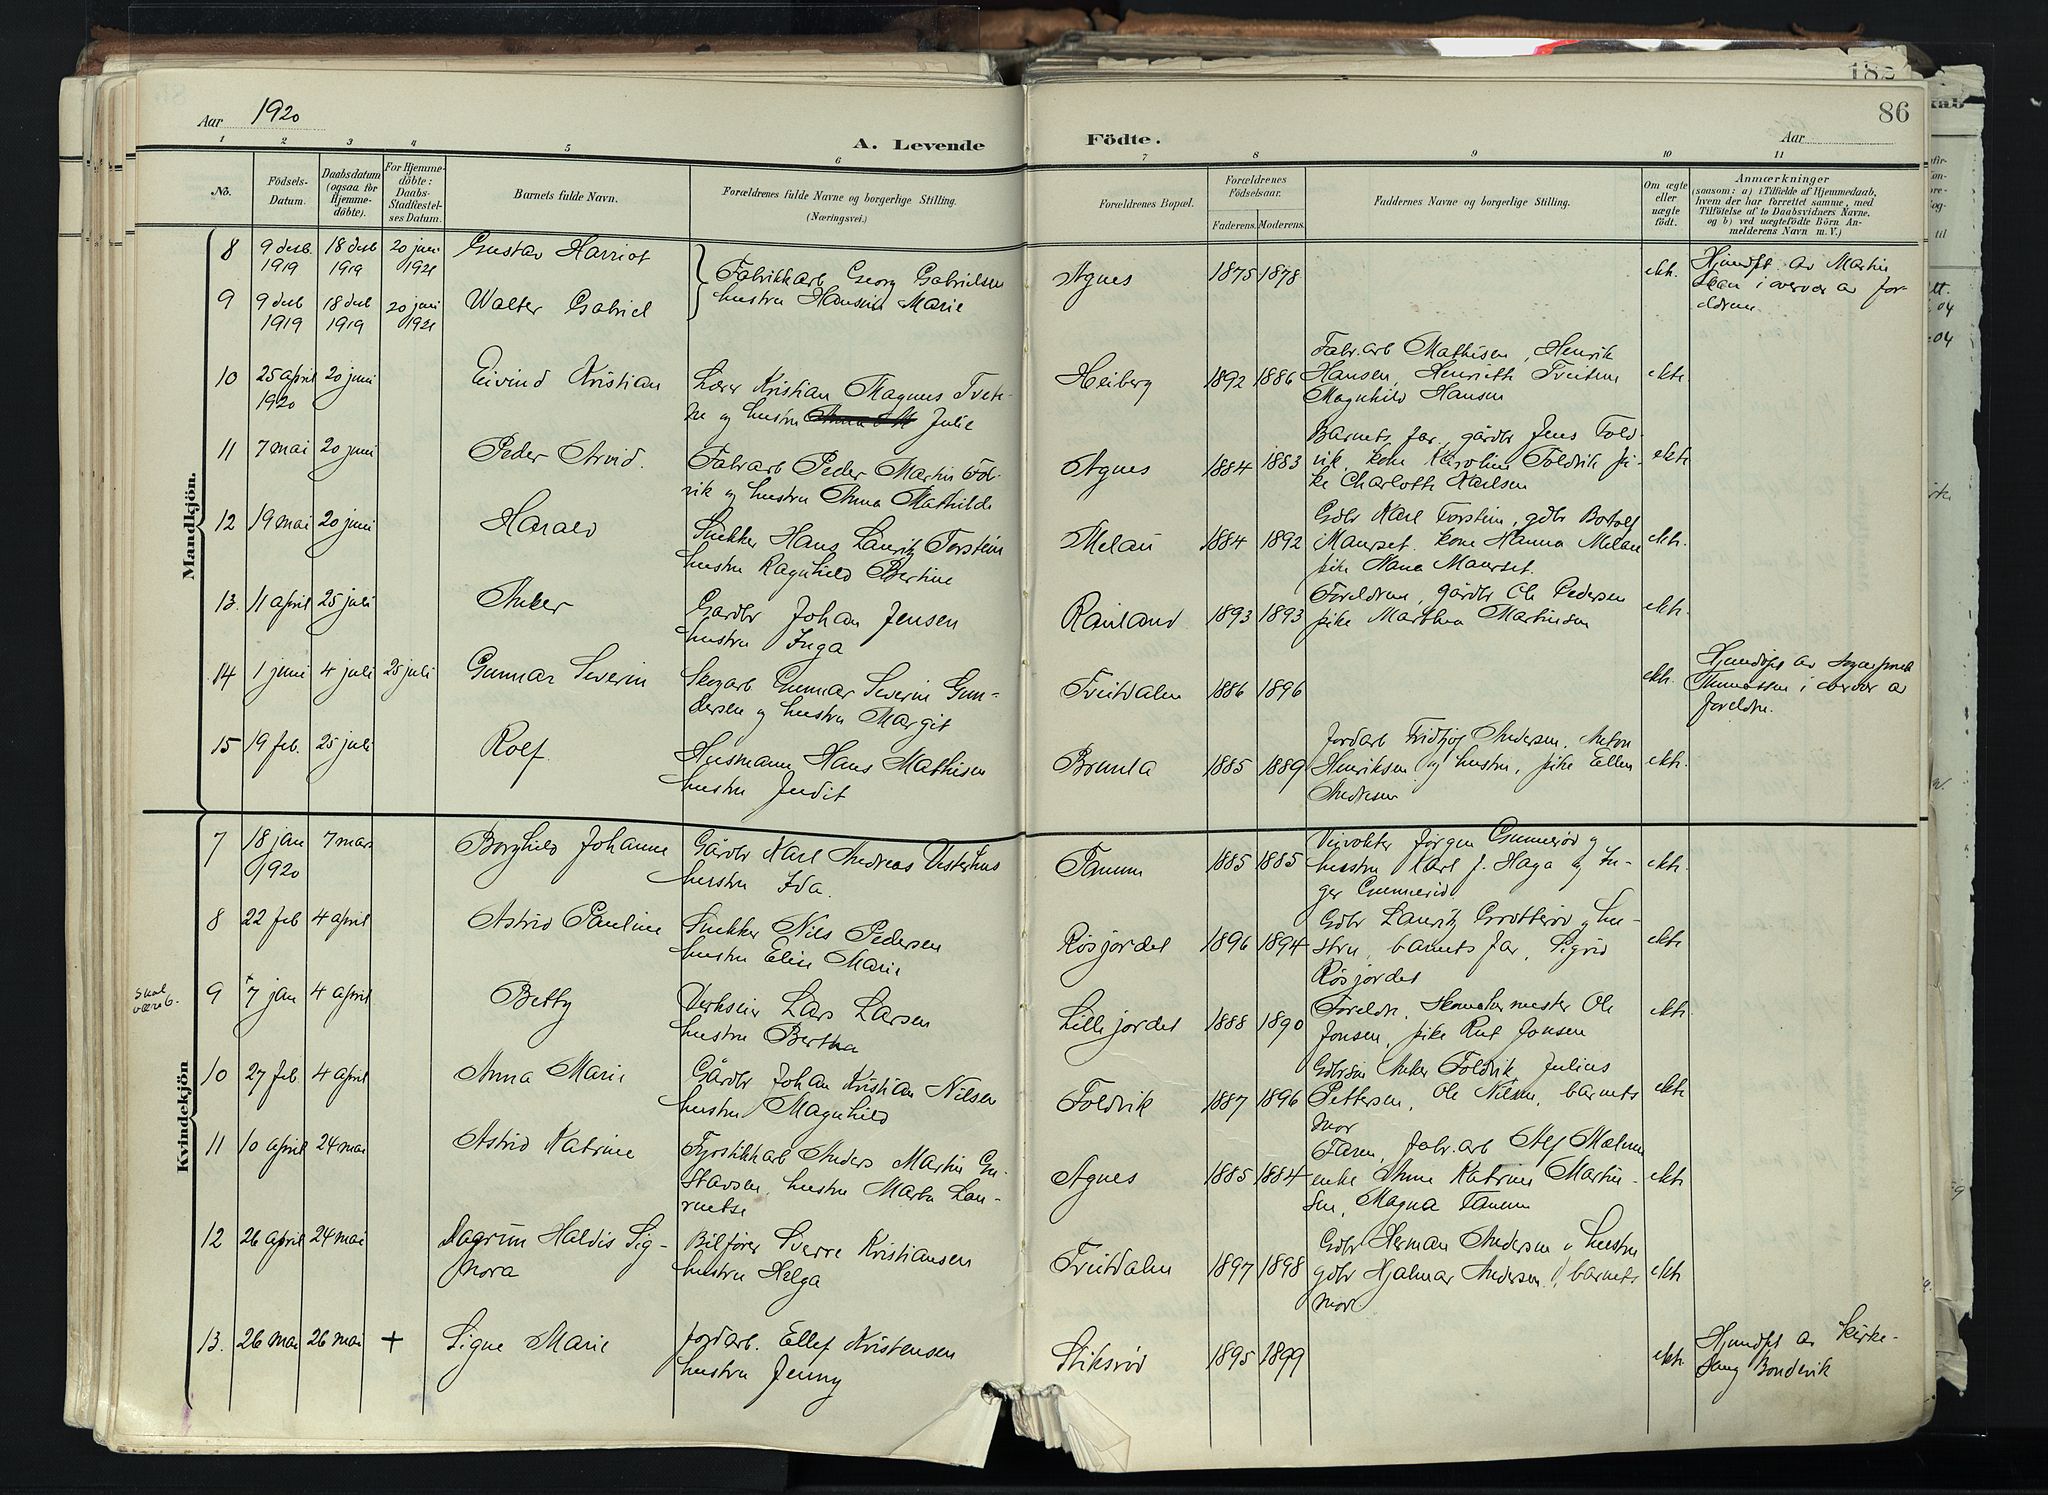 Aar 1920
A. Levende
Födte.
Aar
86
182
1 2 3 4 5 6 7 8 9 10 11
No.
Födsels-
Datum.
Daabsdatum
(ogsaa for
Hjemme-
döbte).
For Hjemme-
döbte:
Daabs-
Stadfæstel-
ses Datum.
Barnets fulde Navn.
Forældrenes fulde Navne og borgerlige Stilling.
(Næringsvei.)
Forældrenes Bopæl.
Forældrenes
Födselsaar.
Faderens. Moderens.
Faddernes Navne og borgerlige Stilling.
Om ægte
eller
uægte
födt.
Anmærkninger
(saasom: a) i Tilfælde af Hjemmedaab,
hvem der har forrettet samme, med
Tilföielse af to Daabsvidners Navne,
og b) ved uægtefödte Börn An-
melderens Navn m. V.)
Mandkjön.
8 9 desb. 1919 18 desb 1919 20 juni Gustav Harriot
Fabrikkarb Georg Gabrielsen
hustru Marie
Agnes 1875 1878 ekte.
Hjemdøpt av Martin
i overvær av for-
eldrene.
9 9 desb 1919 18 desb 1919 20 juni Walter Gabriel
10 25 april 1920 20 juni Eivind Kristian
Lærer Kristian Magnus Tvete-
ne og hustru Julie
Heiberg 1892 1886
Fabr.arb Mathisen, Henrik
Hansen, Henriette Tveitene
Magnhild Hansen
ekte
11 7 mai 20 juni Peder Arvid.
Fabrarb Peder Martin Fol-
vik og hustru Anna Mathilde
Agnes 1884 1883
Barnets far, gårdbr Jens Fold-
vik, kone Karoline Foldvik pi-
ke Charlotte Karlsen
ekte
12 19 mai 20 juni Harald
Snekker Hans Lauritz Torstein
hustru Ragnhild Bertine
Melau 1884 1892
Gdbr Karl Torstein, gdbr Botolf
Maurset. kone Hanna Melau
pike Hana Maurset.
ekte.
13. 11 april 25 juli Anker
Gardbr Johan Jensen
hustru Inga
Rauland 1893 1893
Foreldrene, gårdbr Ole Pedersen
pike Marthea Martinsen
ekte.
14 1 juni 4 juli 25 juli Gunnar Severin
Skogarb Gunnar Severin Gun-
dersen og hustru Margit
Tveitdalen 1886 1896 ekte.
Hjemdøpt av sogneprest
Thomassen i overvær av
foreldre.
15 19 feb. 25 juli Rolf.
Husmann Hans Mathisen
hustru Judit
Brunla 1885 1889
Jordarb Fridtjof Andersen, Anton
Henriksen og hustru, pike Ellen
Andresen
ekte.
Kvindekjön
7 18 jan 1920 7 mars Borghild Johanne
Gårdbr Karl Andreas Vesterhus
hustru Ida.
Tanum 1885 1885
Veivokter Jørgen Gunnerød og
hustru Karl J. Haga og In-
ger Gunnerød
ekte.
8 22 feb 4 april Astrid Pauline
Snekker Nils Pedersen
hustru Elise Marie
Røsjordet 1896 1894
Gdbr Lauritz Grotterød og hu-
stru, barnets far, Sigrid
Røsjordet
ekte
skal
være 6.
9 + 7 jan 4 april Betty
Verkseier Lars Larsen
hustru Bertha
Lillejordet 1888 1890
Foreldre, Skomakermester Ole
Jonsen, pike Rut Jonsen
ekte.
10 27 feb. 4 april Anna Marie
Gårdbr Johan Kristian Nilsen
hustru Magnhild
Foldvik 1887 1896
Gdbrsøn Anker Foldvik, Julius
Pettersen, Ole Nilsen, barnets
mor
ekte
11 10 april 24 mai Astrid Katrine
Fyrstikkarb Anders Martin Gu-
stavsen, hustru Marta Lau-
rentse
Agnes 1885 1884
Faren, fabr.arb Alf Melum
enke Anne Katrine Martin-
sen, Magna Tanum
ekte
12 26 april 24 mai Dagrun Haldis Sig-
nora
Bilfører Sverre Kristiansen
hustru Helga
Tveitdalen 1897 1898
Gdbr Herman Andersen og hustru
gdbr Hjalmar Andersen, barnets
mor.
ekte
13. 26 mai 26 mai + Signe Marie
Jordarb. Ellef Kristensen
hustru Jenny
Stiksrød 1895 1899 ekte
Hjemdøpt av kirke-
sang Bondevik